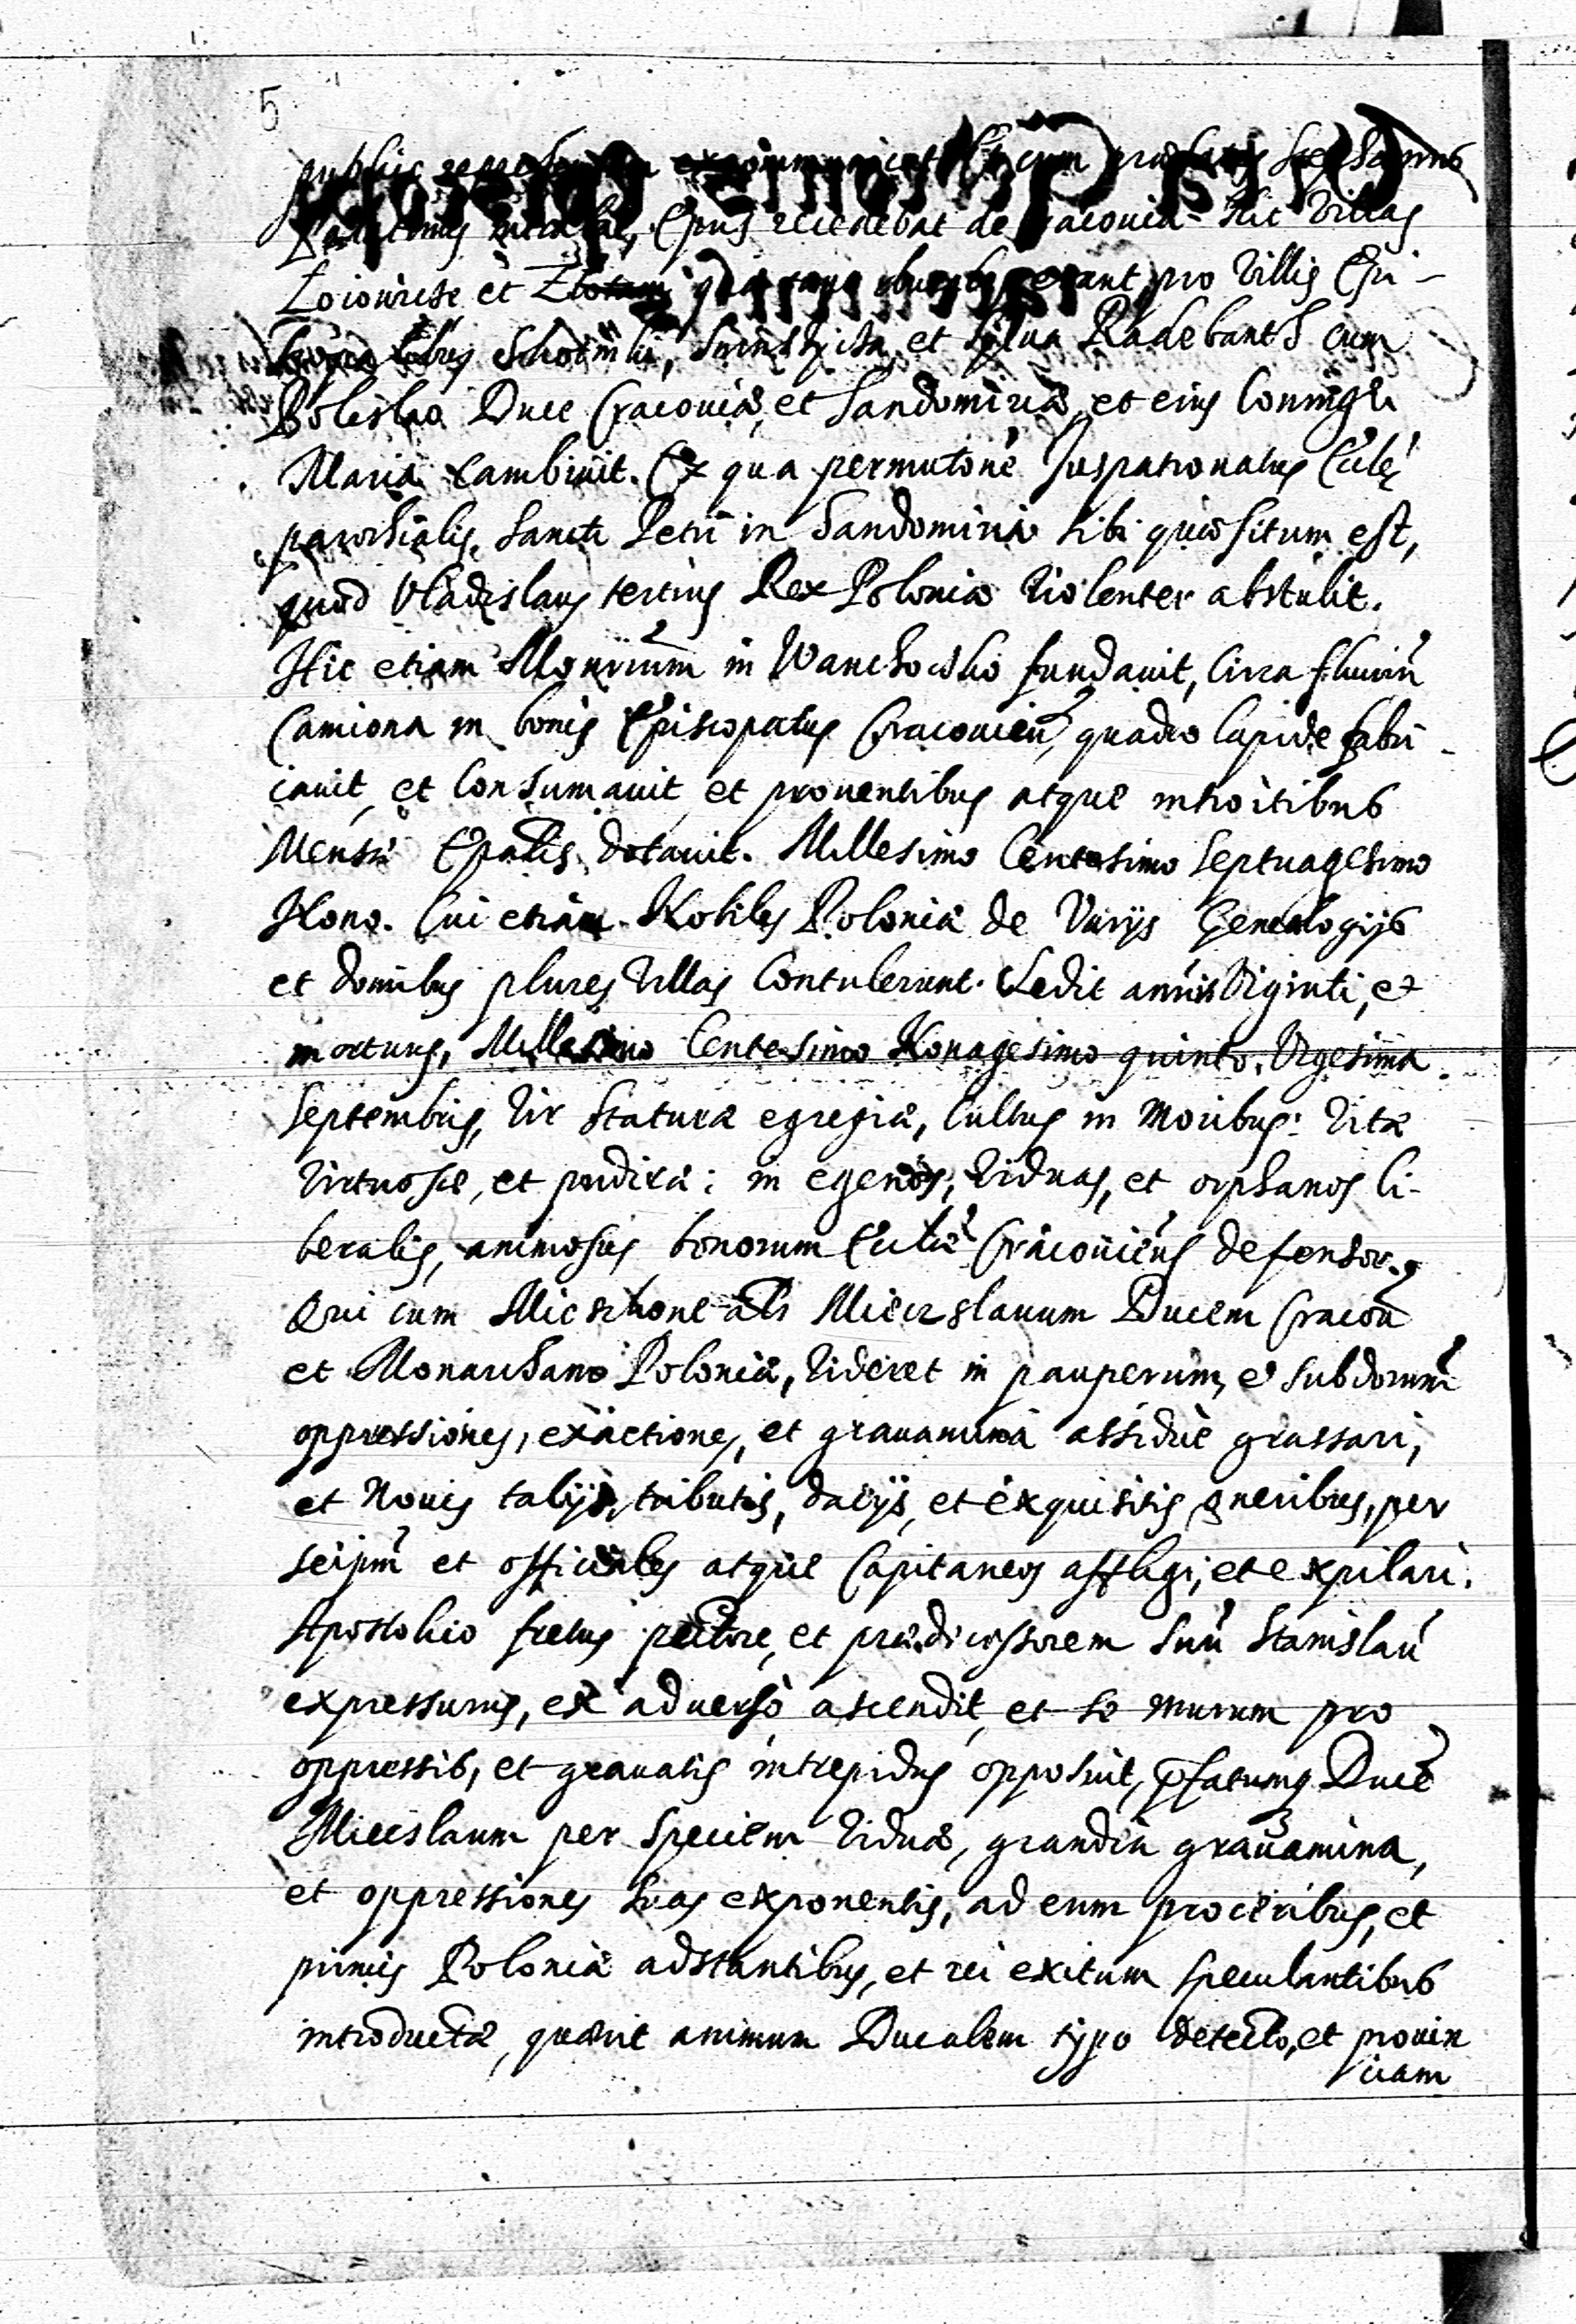 5
publice excommunicat cum
Epus recedebat de Cracouia. Hic Villas
Zoiowice et Zlotam erant pro Villis Epi-
Schotniki, et Sylua Radebants cum
Boleslao Duce Cracouiæ, et Sandomiriæ, et eius Coniuge
Maria cambiuit. Ex qua permutone Juspatronatus Ecclę
parochialis, Sancti Petri in Sandomiria sibi quæsitum est,
quod Vladislaus tertius Rex Poloniæ violenter abstulit.
Hic etiam Monrium in Wanchocko fundauit, circa fluuiu
Camiona in bonis Episcopatus Cracouien, quadro lapide fabri-
cauit, et Consumauit, et prouentibus atque introitibus
Mensæ Epalis dotauit. Millesimo Centesimo Septuagesimo
Nono. Cui etiam Nobiles Poloniæ de Varijs Genealogijs
et domibus plures Villas Contulerunt. Sedit annis Viginti, et
mortuus, Millesimo Centesimo Nonagesimo quinto, Vigesima
Septembris, Vir Staturæ egregiæ, Cultus in Moribus: Vitæ
Virtuosæ, et pudicæ: in egenos, Viduas, et orphanos li-
beralis, animosus bonorum Ecclæ Cracouiens defensor.
Qui cum Miesckone als Miecislauum Ducem Cracou
et Monarcham Poloniæ, Videret in pauperum, et subdorum
oppressiones, exactiones, et grauamina assiduè grassari,
et Nouis talijs, tributis, dacijs, et exquisitis oneribus, per
seipm et officiales atque Capitaneos affligi, et expilari.
Apostolico fretus pectore, et prædicessorem Suu Stanislau
expressurus, ex aduerso ascendit, et se murum pro
oppressis, et grauatis intrepidus opposuit, pfatumq Duce
Miecislaum per Speciem Viduæ, grandia grauamina,
et oppressiones suas exponentis, ad eum proceribus, et
primis Poloniæ adstantibus, et rei exitum Speculantibus
introductæ, quærit animum Ducalem typo detecto, et prouin
ciam